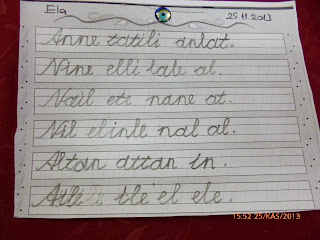 Ela 25.11.2013
Anne tatili anlat.
Nine elli lale al.
Nail ete nane at.
Nil elinle nal al.
Altan attan in.
ile el ele.
15:52 25/KAS/2013